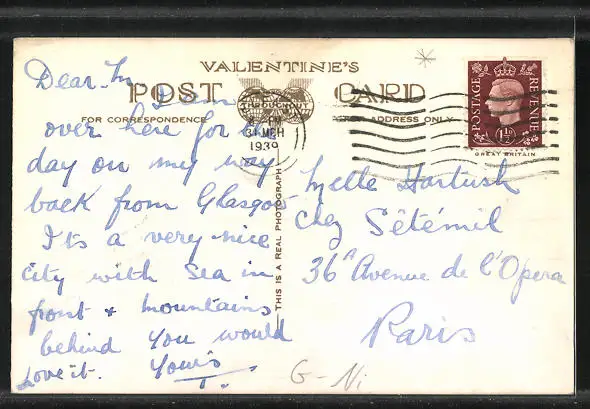 VALENTINE'S
POST CARD
FOR CORRESPONDENCE
ADDRESS ONLY
THROUGHOUT
THIS IS A REAL PHOTOGRAPH
31 MCH
1939
POSTAGE
REVENUE
1½D
GREAT BRITAIN
Dear
I am
over here for
day on my way
back from Glasgow
It's a very nice
city with sea in
front & mountains
behind you would
love it. Yours
T.
Melle Hartush
chez Sétémil
36A Avenue de l'Opera
Paris
G-Ni